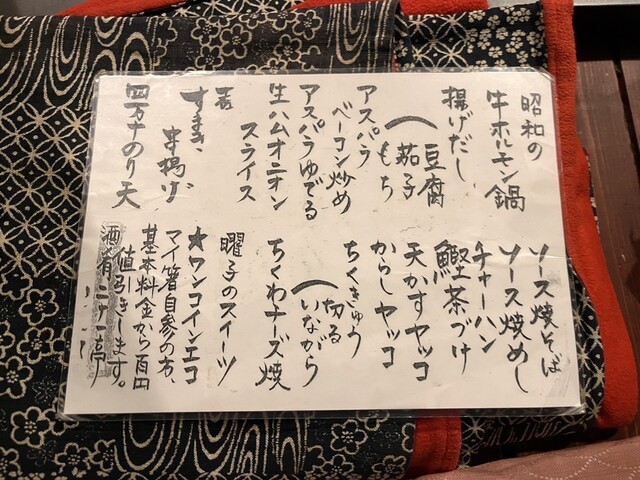 昭和の
牛ホルモン鍋
揚げだし
豆腐
茄子
もち
アスパラ
ベーコン炒め
アスパラゆでる
生ハムオニオン
スライス
すまき、
串揚げ
四万十のり天
ソース焼そば
ソース焼めし
チャーハン
鰹茶づけ
天かすヤッコ
からしヤッコ
ちくきゅう
切る
いながら
ちくわチーズ焼
曜子のスイーツ
★ワンコインエコ
マイ箸自参の方、
基本料金から百円
値引きします。
酒肴